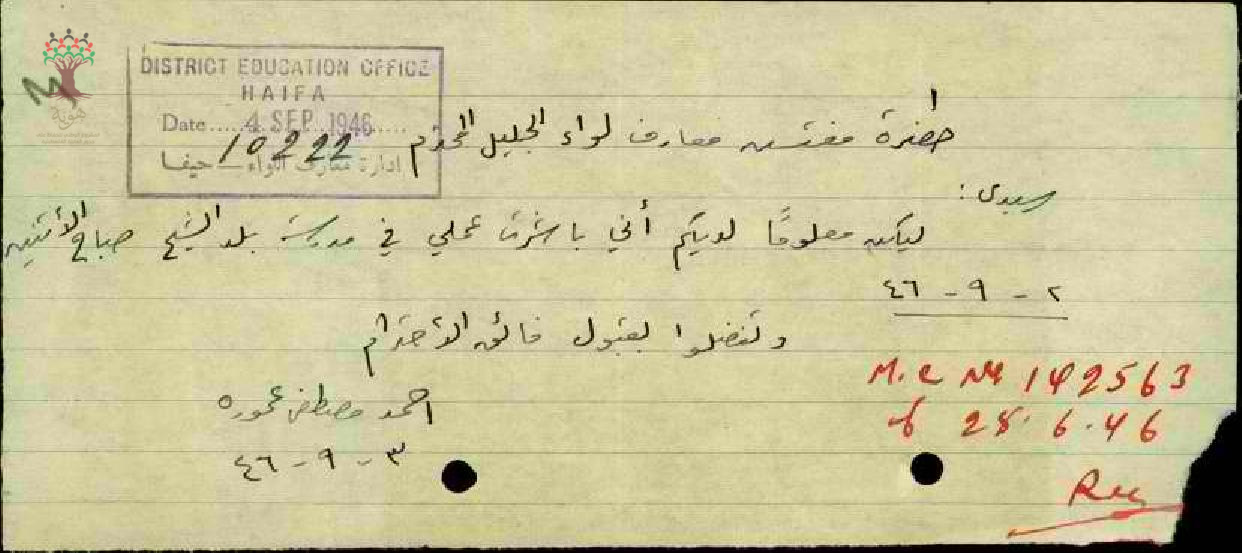 DISTRICT EDUCATION OFFICE
HAIFA
Date..... 4 SEP 1946 .....
10222
ادارة معارف اللواء – حيفا
هوية
حضرة مفتش معارف لواء الجليل المحترم
سيدي :
ليكن معلومًا لديكم أني باشرت عملي في مدرسة بلد الشيخ صباح الأثنين
٢ - ٩ - ٤٦
وتفضلوا بقبول فائق الاحترام
احمد مصطفى عموره
٣ - ٩ - ٤٦
M.C No 142563
of 28.6.46